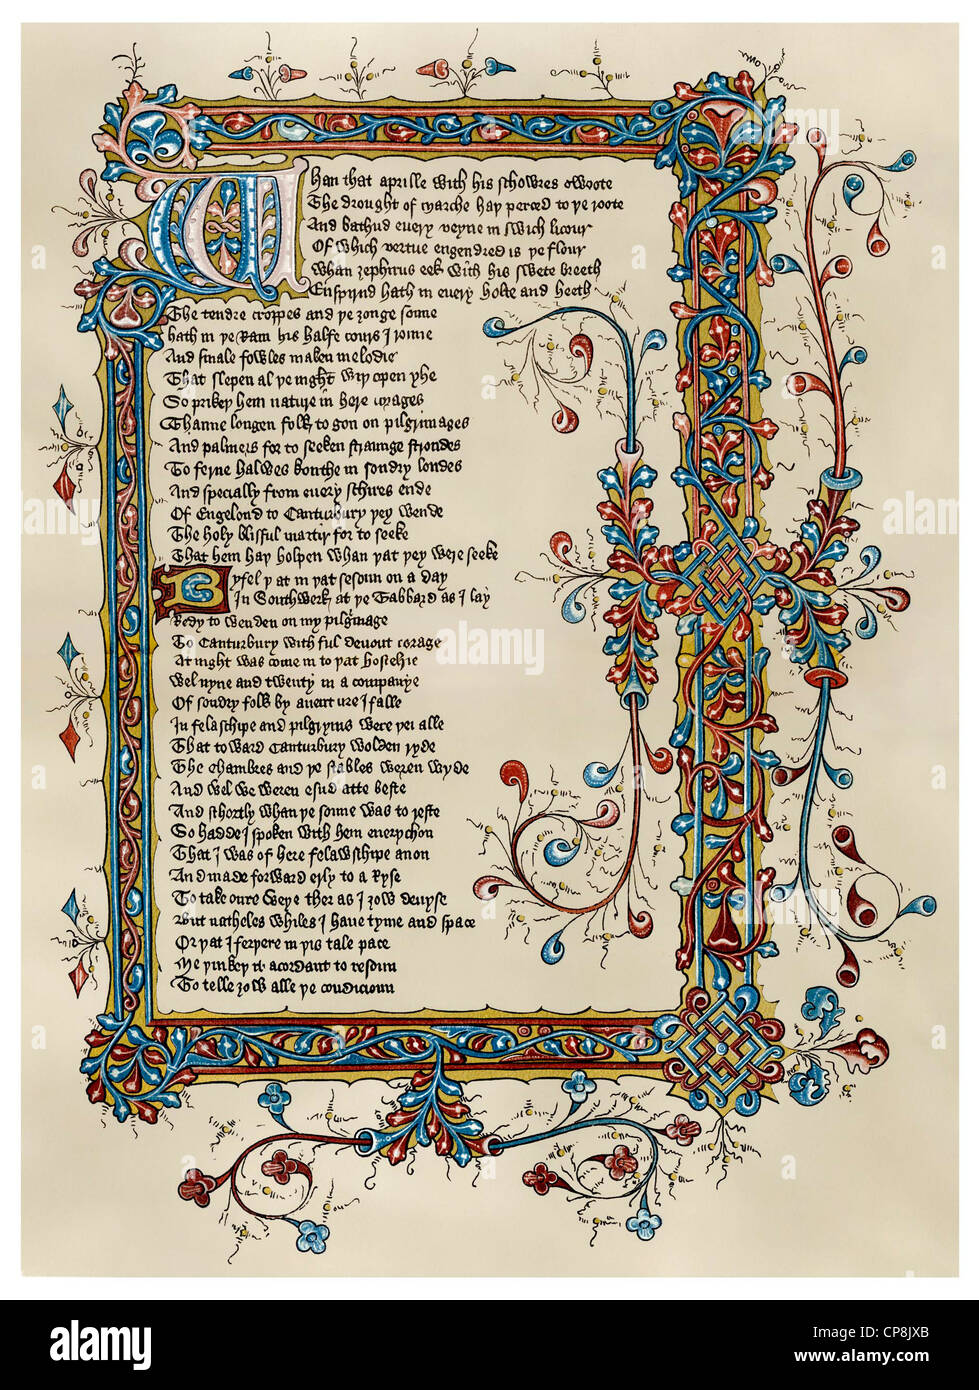 Whan that aprille with his schowres swoote
The drought of marche hay perced to ye roote
And bathud euery veyne in swich licour
Of which vertue engendred is ye flour
Whan zephirus eek with his swete breeth
Enspirud hath in euery holte and heeth
The tendre croppes and ye zonge sonne
hath in ye Ram his halfe cours I ronne
And smale fowles maken melodie
That slepen al ye night wiy open yhe
So prikey hem nature in here corages
Thanne longen folk to gon on pilgrimages
And palmers for to seeken straunge strondes
To ferne halwes kouthe in sondry londes
And specially from euery schires ende
Of Engelond to Canturbury yey wende
The holy blisful martir for to seeke
That hem hay holpen whan yat yey were seeke
Byfel yat in yat sesoun on a day
In Southwerk at ye Tabbard as I lay
Redy to wenden on my pilgrimage
To Canturbury with ful deuout corage
At night was come in to yat hostelrie
Wel nyne and twenty in a companye
Of sondry folk by auenture ifalle
In felaschipe and pilgryms were yei alle
That toward Canturbury wolden ryde
The chambres and ye stables weren wyde
And wel we weren esud atte beste
And schortly whan ye sonne was to reste
So hadde I spoken with hem euerychon
That I was of here felawschipe anon
And made forward erly to aryse
To take oure weye ther as I zow deuyse
But natheles whiles I haue tyme and space
Or yat I feryere in yis tale pace
Me yinkey it acordant to resoun
To telle zow alle ye condicioun
alamy
Image ID: CP8JXB
www.alamy.com